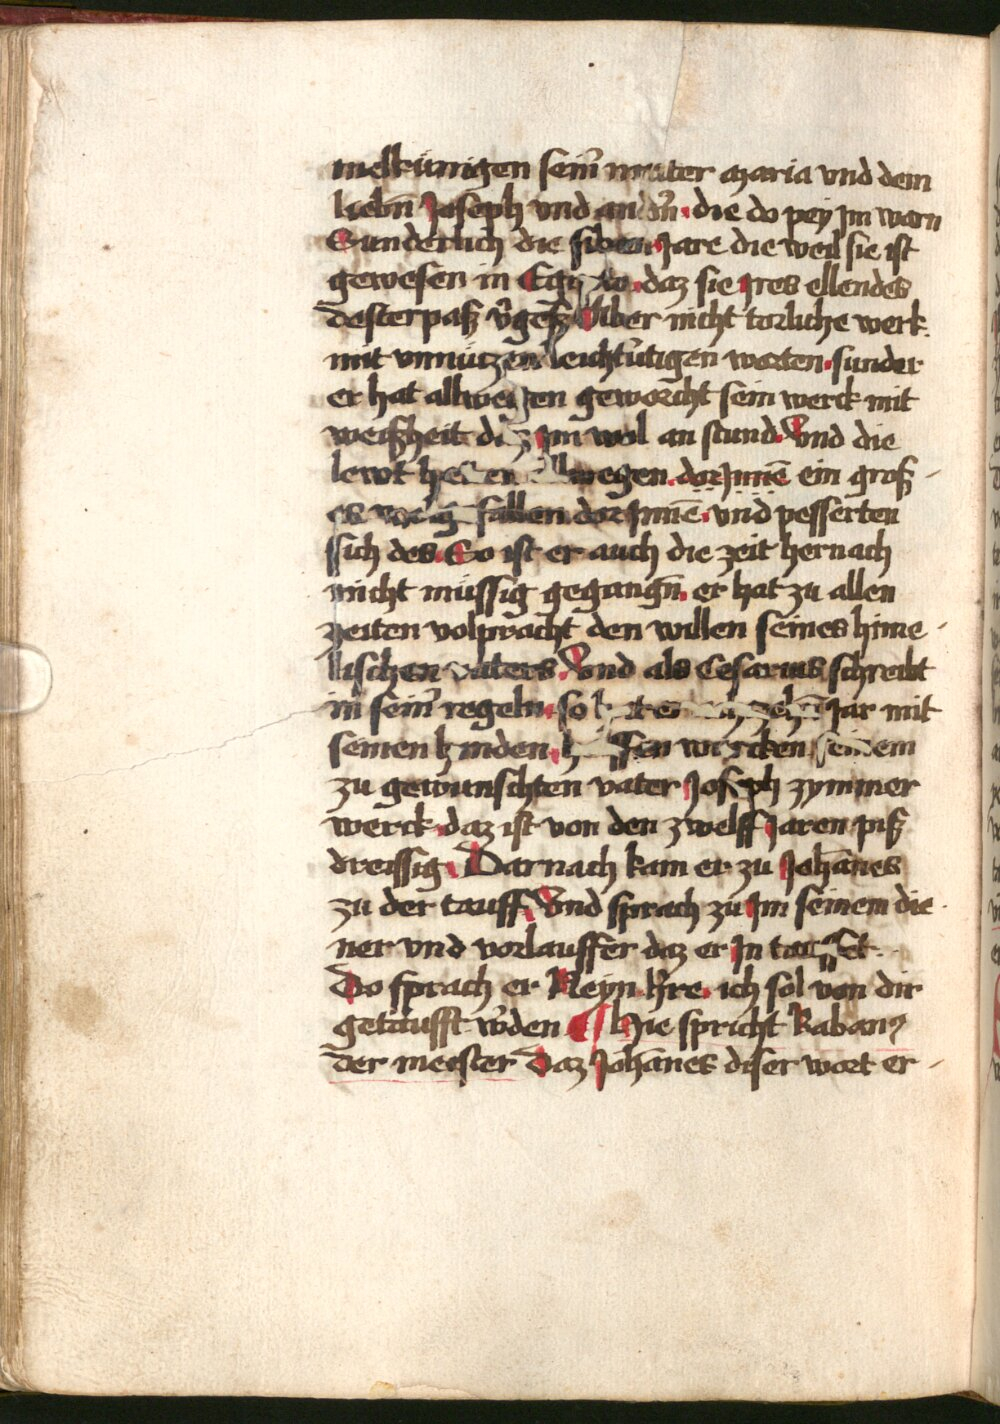 melkünigen seinr̄ muter maria vnd dem
liebn̄ Joseph vnd andr̄n. die do pey Jm warn
Sunderlich die siben Jare die weil sie ist
gewesen in Egypto. daz sie Jres ellendes
desterpaß vgeß Aber nicht torliche werk.
mit vnnützen leichtūtigen worten. sunder
er hat allwegen geworcht sein werck mit
weißheit daz Jm wol an stund. Vnd die
lewt allwegen. dorJnnē ein groß
es fallen dorJnnē. vnd pesserten
sich des. So ist er auch die zeit hernach
nicht müssig gegangn̄. er hat zu allen
zeiten volpracht den willen seines hime
llischen vaters. Vnd als Cesarius schreibt
in seinr̄ regeln. so Jar mit
seinen henden. wircken seinem
zu gewunschten vater Joseph zymmer
werck. daz ist von den zwelff Jaren piß
dreissig. Darnach kam er zu Johānes
zu der tauff. Vnd sprach zu Jm seinem die
ner vnd vorlauffer daz er Jn
Do sprach er Neyn hre. ich sol von dir
getaufft wden ¶ Hie spricht Rabanꝰ
der meester Daz Johānes diser wort er